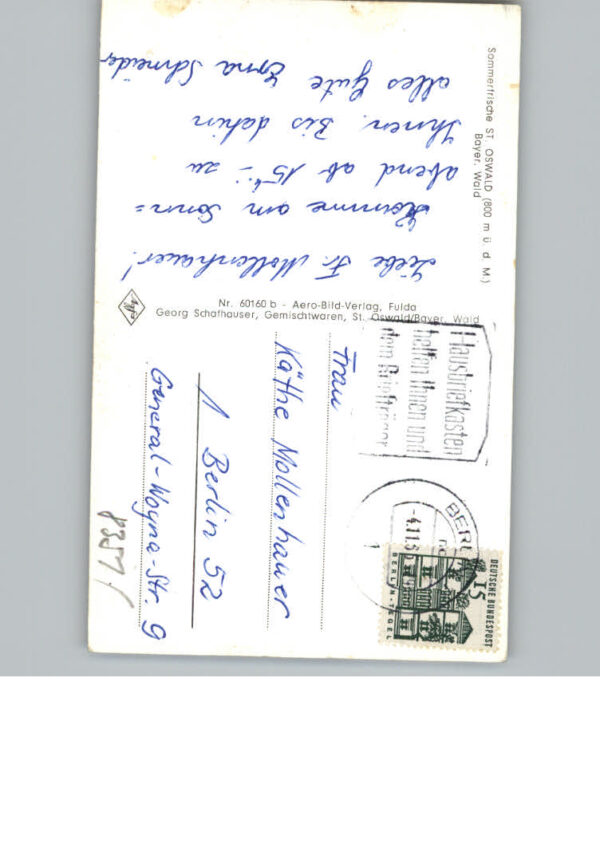 Sommerfrische ST. OSWALD (800 m ü. d. M.)
Bayer. Wald
Liebe Fr. Mollenhauer!
Komme am Sonn=
abend ab 15ʰ- zu
Ihnen. Bis dahin
alles Gute Erna Schneider
Nr. 60160 b - Aero-Bild-Verlag, Fulda
Georg Schafhauser, Gemischtwaren, St. Oswald/Bayer. Wald
Hausbriefkasten
helfen Ihnen und
dem Briefträger
BERL
1
DEUTSCHE BUNDESPOST
15
BERLIN-TEGEL
Frau
Käthe Mollenhauer
1 Berlin 52
General-Woyna-Str. 9